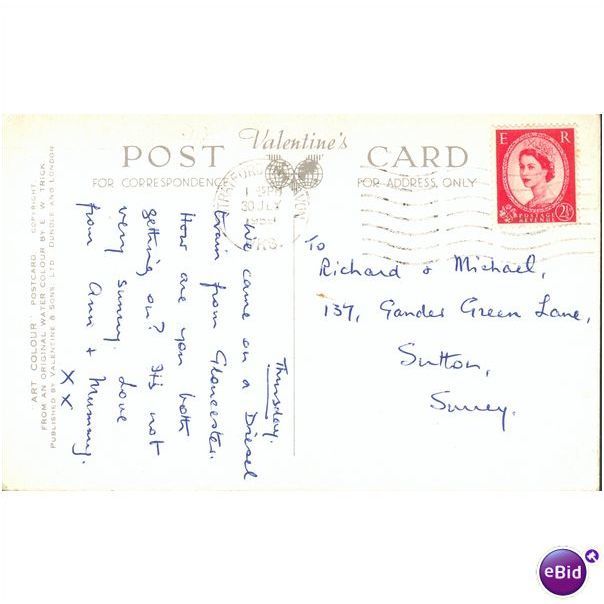 Valentine's
POST CARD
FOR CORRESPONDENCE
FOR ADDRESS ONLY
"ART COLOUR" POSTCARD. COPYRIGHT.
FROM AN ORIGINAL WATER COLOUR BY E. W. TRICK.
PUBLISHED BY VALENTINE & SONS, LTD. DUNDEE AND LONDON
30 JLY
E R
POSTAGE
REVENUE
2½
Thursday.
We came on a Diesel
train from Gloucester.
How are you both
getting on? It's not
very sunny. Love
from Ann + Mummy.
X X
To
Richard & Michael,
137, Gander Green Lane,
Sutton,
Surrey.
eBid